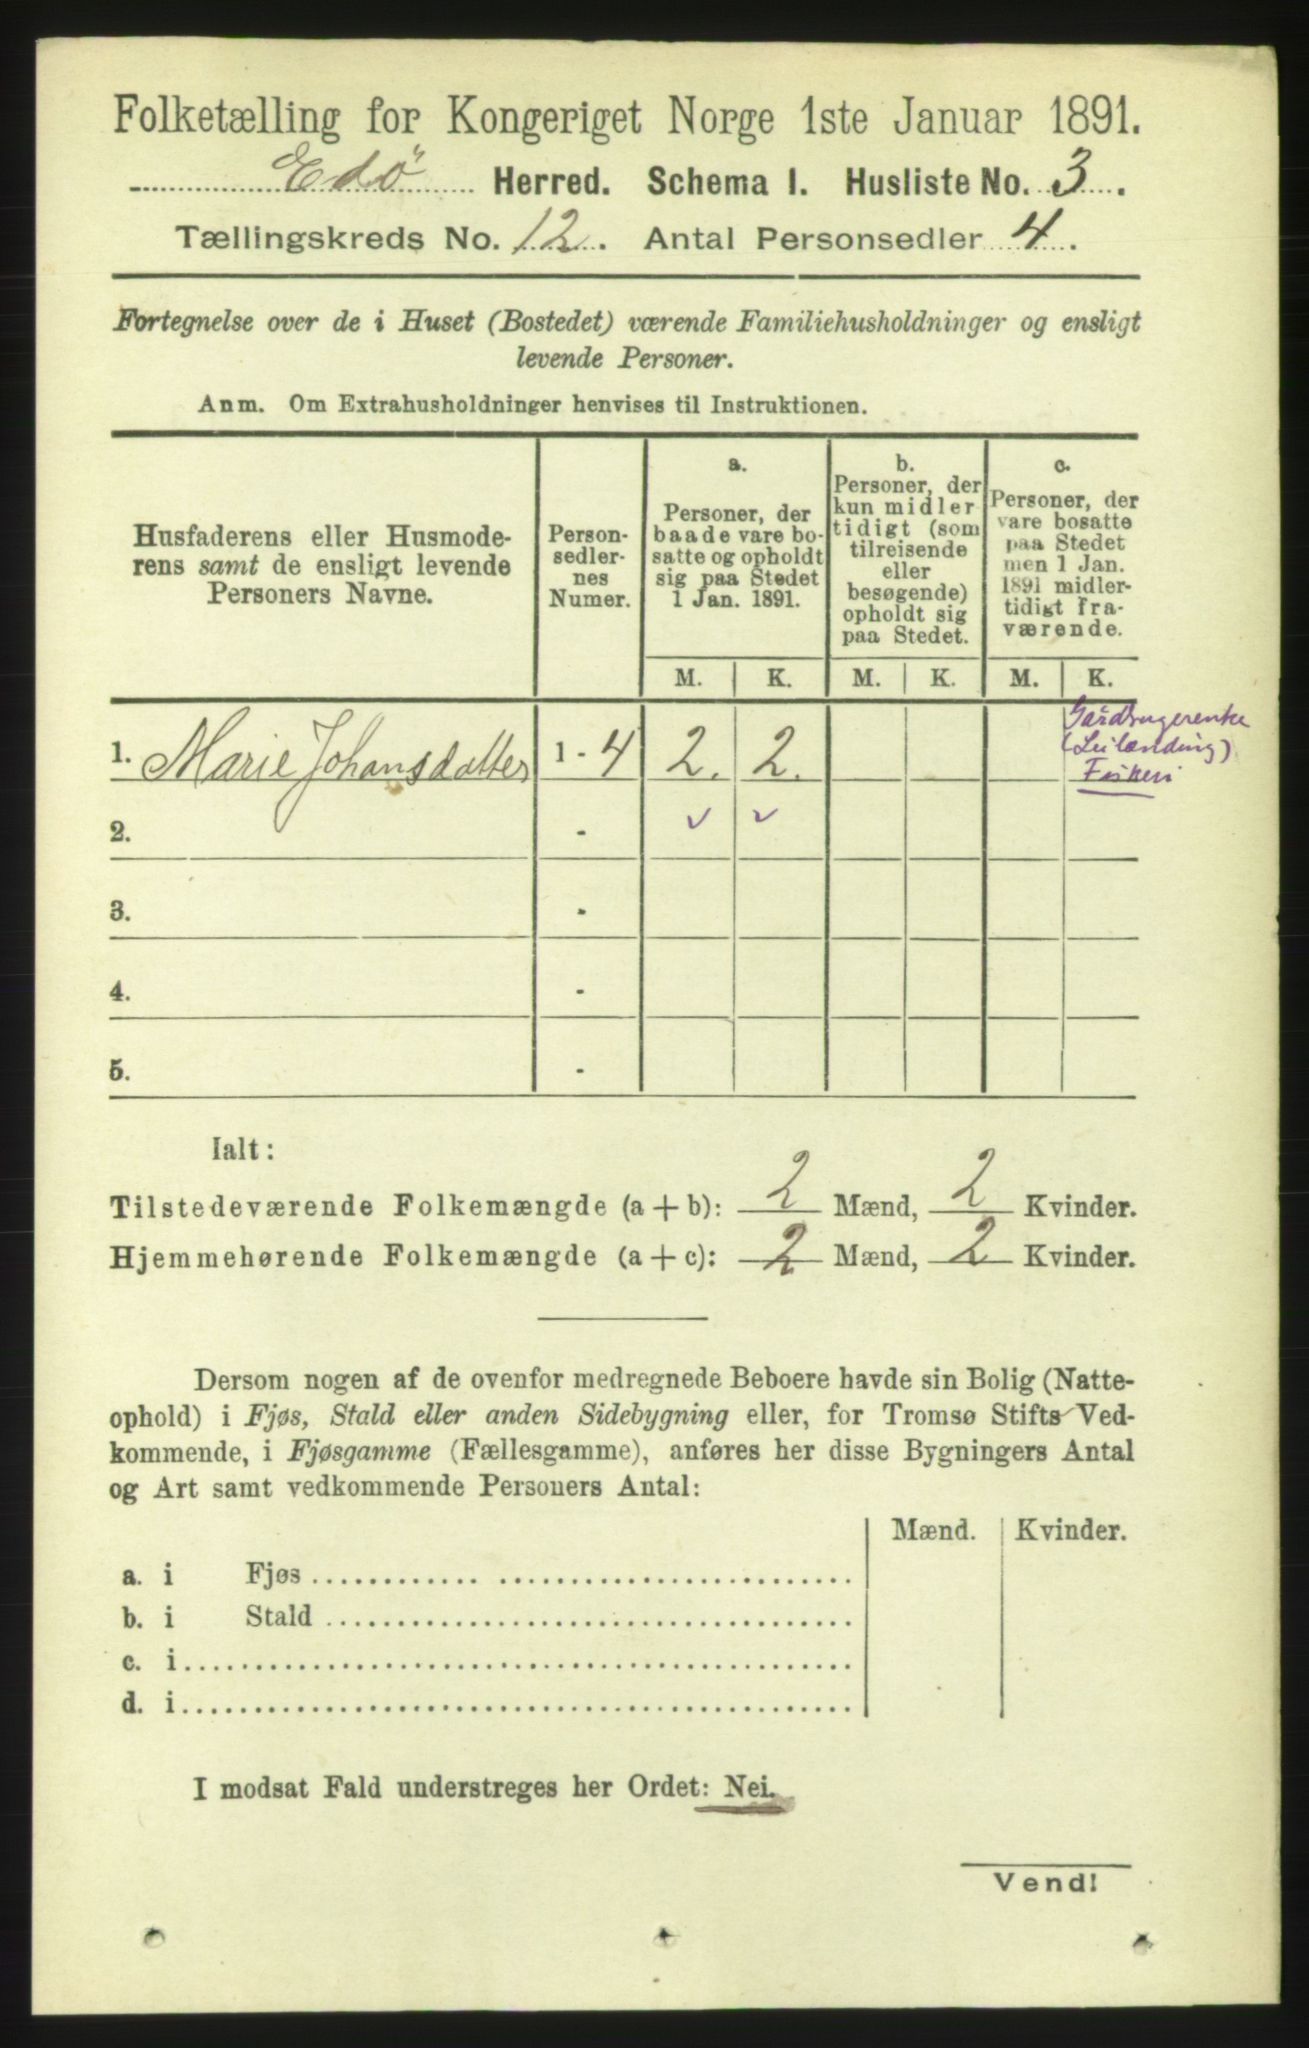 Folketælling for Kongeriget Norge 1ste Januar 1891.
Edö Herred. Schema I. Husliste No. 3.
Tællingskreds No. 12. Antal Personsedler 4.
Fortegnelse over de i Huset (Bostedet) værende Familiehusholdninger og ensligt
levende Personer.
Anm. Om Extrahusholdninger henvises til Instruktionen.
Husfaderens eller Husmode-
rens samt de ensligt levende
Personers Navne.
Person-
sedler-
nes
Numer.
a.
Personer, der
baade vare bo-
satte og opholdt
sig paa Stedet
1 Jan. 1891.
b.
Personer, der
kun midler
tidigt (som
tilreisende
eller
besøgende)
opholdt sig
paa Stedet.
c.
Personer, der
vare bosatte
paa Stedet
men 1 Jan.
1891 midler-
tidigt fra-
værende.
M. K. M. K. M. K.
1. Marie Johansdatter 1 - 4 2. 2.
Gårdbrugerenke
(Leilænding)
Fiskeri
2. - ✓ ✓
3. -
4. -
5. -
Ialt:
Tilstedeværende Folkemængde (a + b): 2 Mænd, 2 Kvinder.
Hjemmehørende Folkemængde (a + c): 2 Mænd, 2 Kvinder.
Dersom nogen af de ovenfor medregnede Beboere havde sin Bolig (Natte-
ophold) i Fjøs, Stald eller anden Sidebygning eller, for Tromsø Stifts Ved-
kommende, i Fjøsgamme (Fællesgamme), anføres her disse Bygningers Antal
og Art samt vedkommende Personers Antal:
Mænd. Kvinder.
a. i Fjøs
b. i Stald
c. i
d. i
I modsat Fald understreges her Ordet: Nei.
Vend!